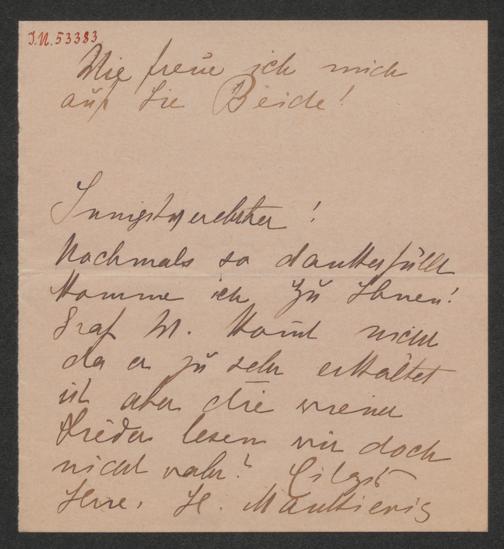 I.N. 53383
Wie freue ich mich
auf Sie Beide!
Innigstverehrter!
Nochmals so dankerfüllt
komme ich zu Ihnen!
Graf W. kommt nicht
da er zu sehr erkältet
ist aber die
lesen wir doch
nicht wahr? Eiligst
Ihre. H.